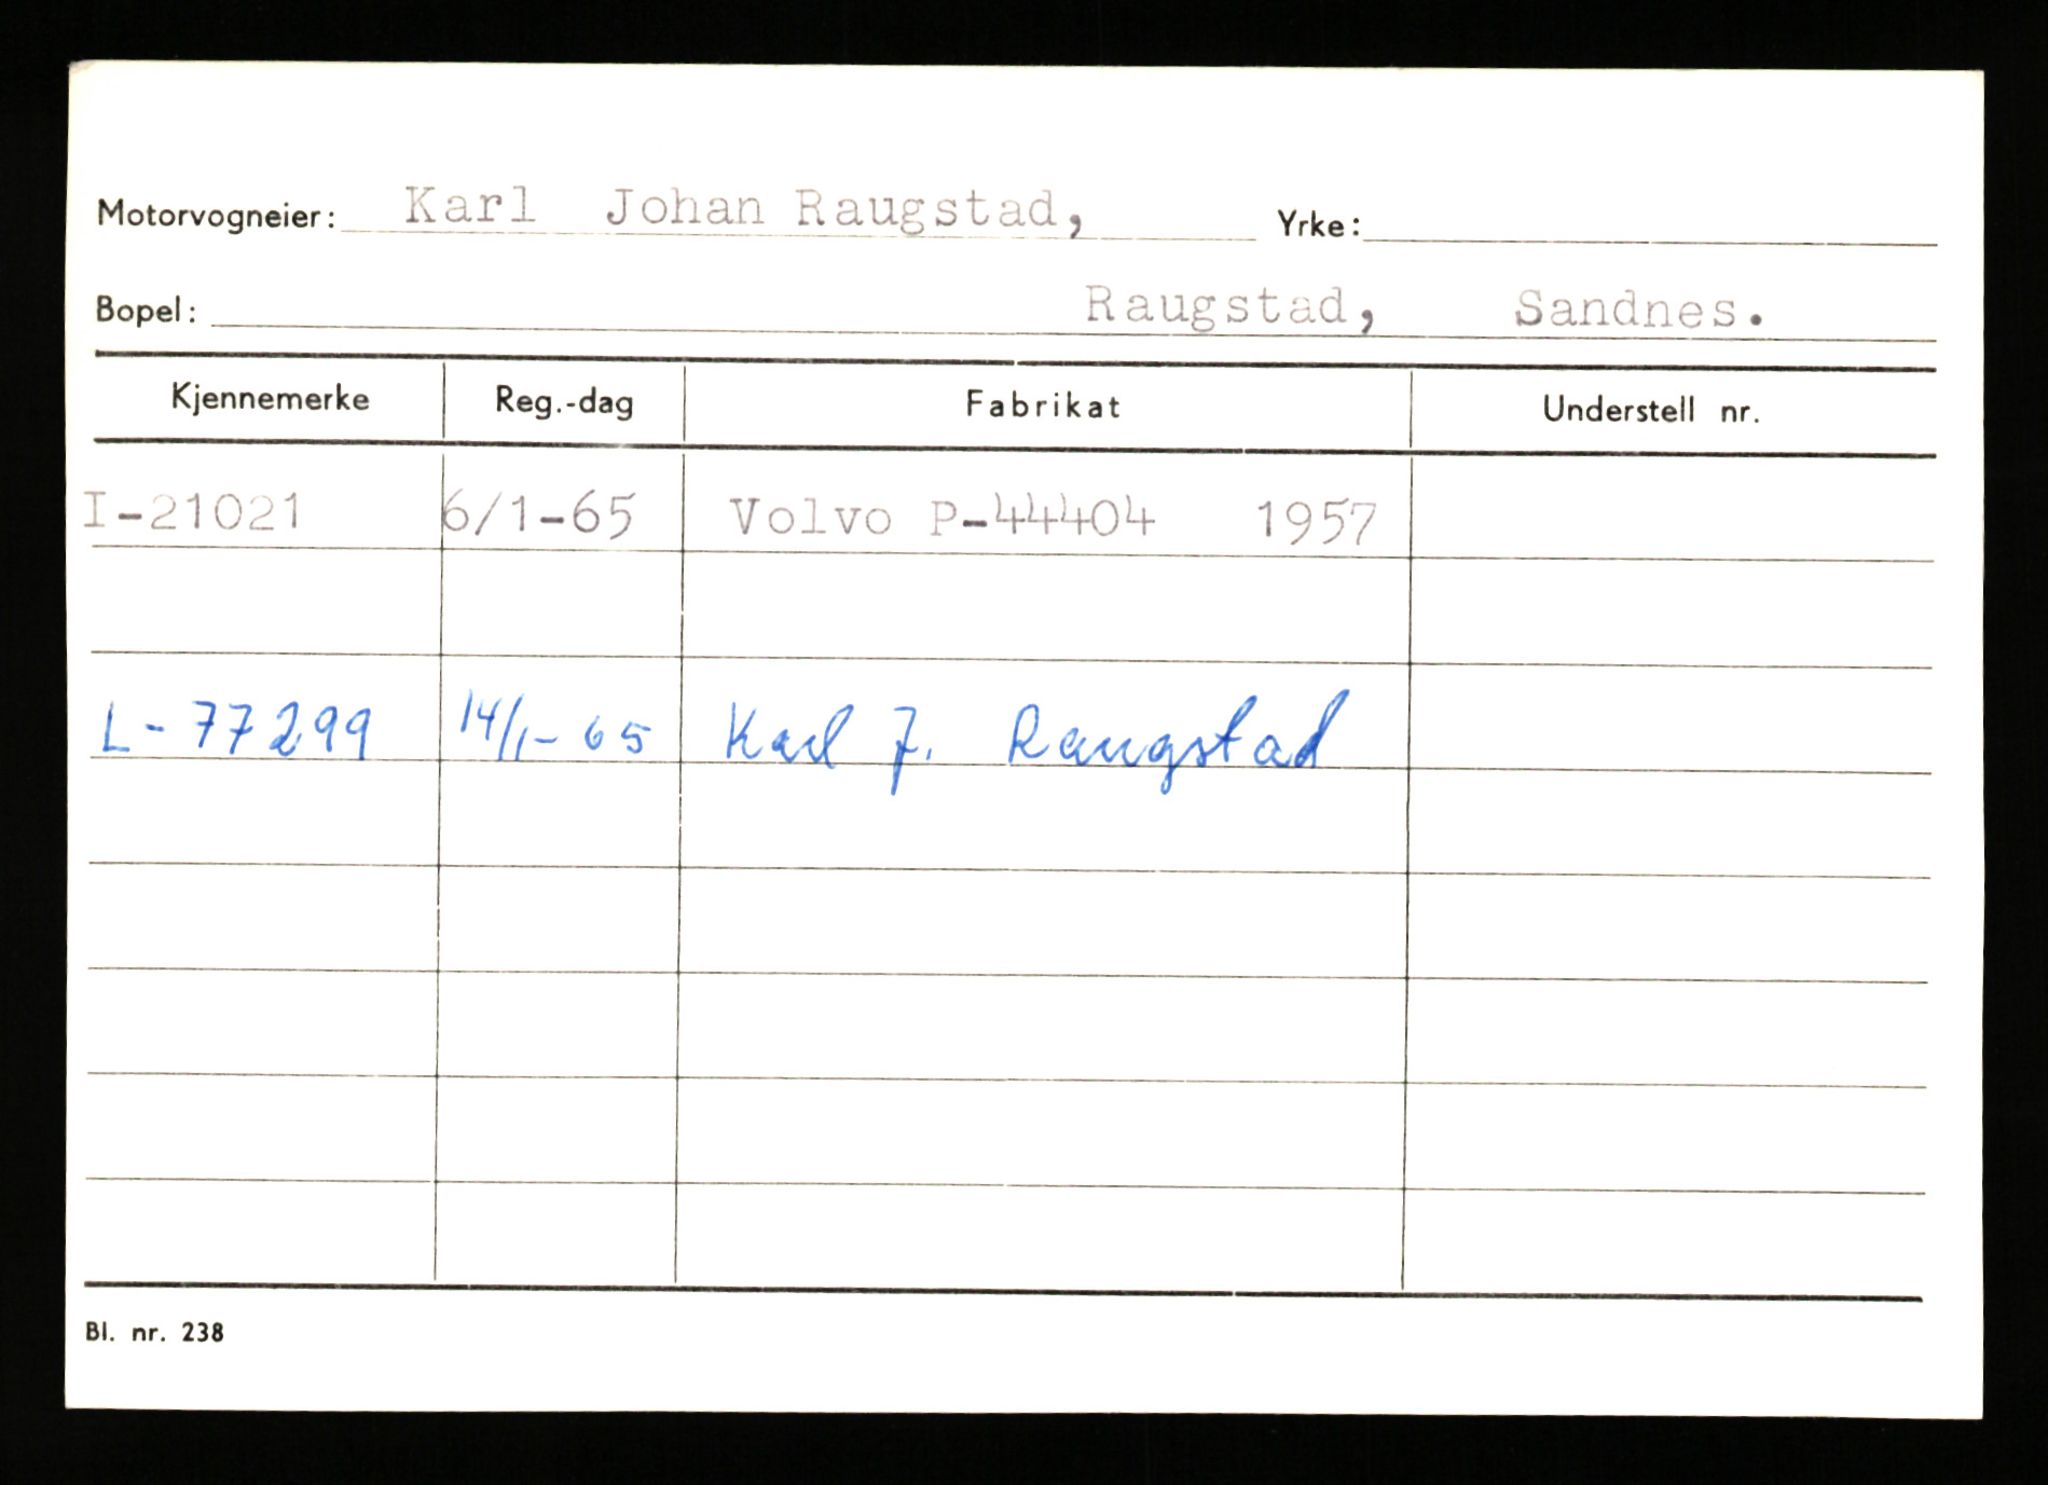 Motorvogneier: Karl Johan Raugstad, Yrke:
Bopel: Raugstad, Sandnes.
Kjennemerke Reg.-dag Fabrikat Understell nr.
I-21021 6/1-65 Volvo P-44404 1957
L-77299 14/1-65 Karl J. Raugstad
Bl. nr. 238